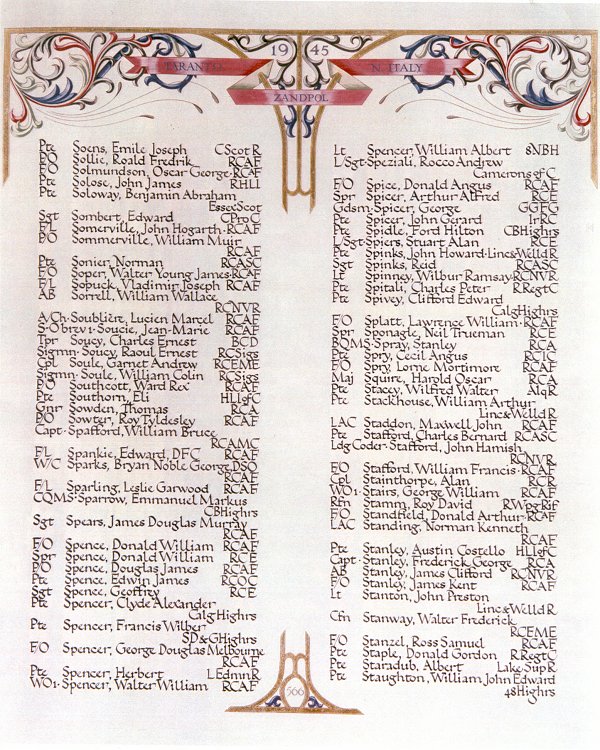 19 45
TARANTO
N. ITALY
ZANDPOL
Pte Soens, Emile Joseph CScotR
P/O Sollie, Roald Fredrik RCAF
F/O Solmundson, Oscar George RCAF
Pte Solose, John James RHLI
Pte Soloway, Benjamin Abraham
EssexScot
Sgt Sombert, Edward CProC
F/L Somerville, John Hogarth RCAF
P/O Sommerville, William Muir
RCAF
Pte Sonier, Norman RCASC
F/O Soper, Walter Young James RCAF
F/L Sopuck, Vladimir Joseph RCAF
AB Sorrell, William Wallace
RCNVR
A/Ch Soublière, Lucien Marcel RCAF
S-O brev 1 Soucie, Jean-Marie RCAF
Tpr Soucy, Charles Ernest BCD
Sigmn Soucy, Raoul Ernest RCSigs
Cpl Soule, Garnet Andrew RCEME
Sigmn Soule, William Colin RCSigs
P/O Southcott, Ward Rex RCAF
Pte Southorn, Eli HLIofC
Gnr Sowden, Thomas RCA
P/O Sowter, Roy Tyldesley RCAF
Capt Spafford, William Bruce
RCAMC
F/L Spankie, Edward, DFC RCAF
W/C Sparks, Bryan Noble George, DSO
RCAF
F/L Sparling, Leslie Garwood RCAF
CQMS Sparrow, Emmanuel Markus
CBHighrs
Sgt Spears, James Douglas Murray
RCAF
F/O Spence, Donald William RCAF
Spr Spence, Donald William RCE
P/O Spence, Douglas James RCAF
Pte Spence, Edwin James RCOC
Sgt Spence, Geoffrey RCE
Pte Spencer, Clyde Alexander
CalgHighrs
Pte Spencer, Francis Wilber
SD&GHighrs
F/O Spencer, George Douglas Melbourne
RCAF
Pte Spencer, Herbert LEdmnR
WO1 Spencer, Walter William RCAF
Lt Spencer, William Albert 8NBH
L/Sgt Speziali, Rocco Andrew
Camerons of C
F/O Spice, Donald Angus RCAF
Spr Spicer, Arthur Alfred RCE
Gdsm Spicer, George GGFG
Pte Spicer, John Gerard IrRC
Pte Spidle, Ford Hilton CBHighrs
L/Sgt Spiers, Stuart Alan RCE
Pte Spinks, John Howard Linc&WelldR
Sgt Spinks, Reid RCASC
Lt Spinney, Wilbur Ramsay RCNVR
Pte Spitali, Charles Peter RRegtC
Pte Spivey, Clifford Edward
CalgHighrs
F/O Splatt, Lawrence William RCAF
Spr Sponagle, Neil Trueman RCE
BQMS Spray, Stanley RCA
Pte Spry, Cecil Angus RCIC
F/O Spry, Lorne Mortimore RCAF
Maj Squire, Harold Oscar RCA
Pte Stacey, Wilfred Walter AlqR
Pte Stackhouse, William Arthur
Linc&WelldR
LAC Staddon, Maxwell John RCAF
Pte Stafford, Charles Bernard RCASC
Ldg Coder Stafford, John Hamish
RCNVR
F/O Stafford, William Francis RCAF
Cpl Stainthorpe, Alan RCR
WO1 Stairs, George William RCAF
Rfn Stamm, Roy David RWpgRif
F/O Standfield, Donald Arthur RCAF
LAC Standing, Norman Kenneth
RCAF
Pte Stanley, Austin Costello HLIofC
Capt Stanley, Frederick George RCA
AB Stanley, James Clifford RCNVR
F/O Stanley, James Kent RCAF
Lt Stanton, John Preston
Linc&WelldR
Cfn Stanway, Walter Frederick
RCEME
F/O Stanzel, Ross Samuel RCAF
Pte Staple, Donald Gordon RRegtC
Pte Staradub, Albert Lake Sup R
Pte Staughton, William John Edward
48Highrs
566